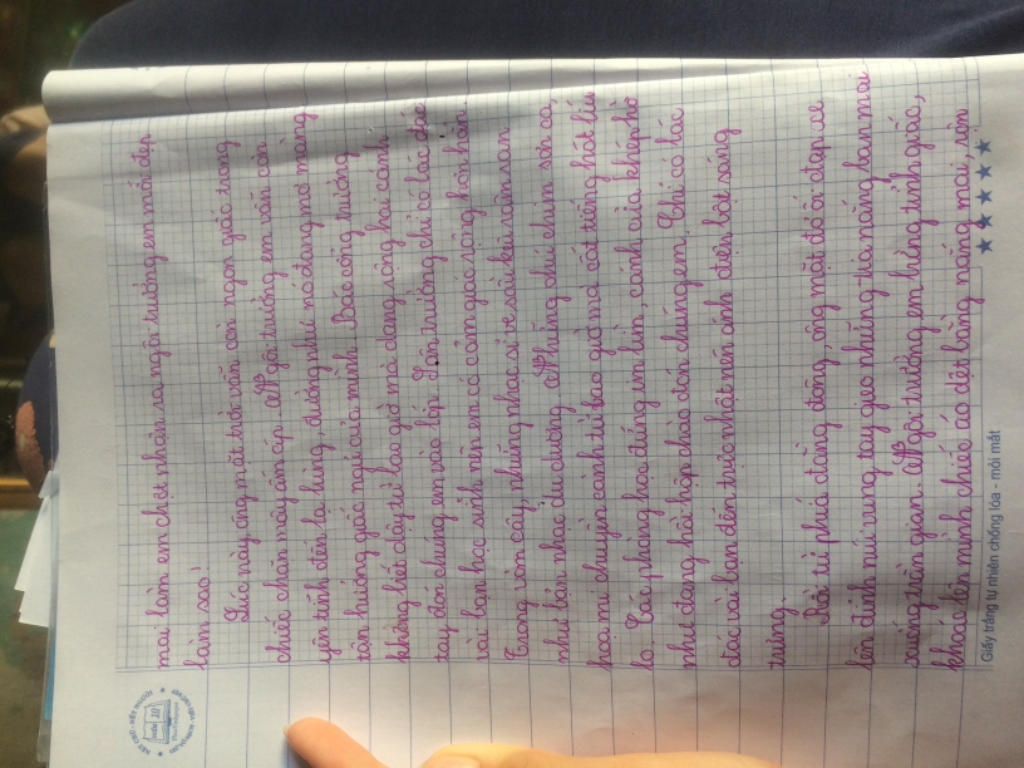 mai làm em chợt nhận ra ngôi trường em mới đẹp
làm sao!
Lúc này, ông mặt trời vẫn còn ngon giấc trong
chiếc chăn mây ấm áp. Ngôi trường em vẫn còn
yên tĩnh đến lạ lùng, dường như nó đang mơ màng
tận hưởng giấc ngủ của mình. Bác cổng trường
không biết dậy từ bao giờ mà dang rộng hai cánh
tay đón chúng em vào lớp. Sân trường chỉ có lác đác
vài bạn học sinh nên em có cảm giác rộng hơn hẳn.
Trong vòm cây, những nhạc sĩ ve sầu kêu râm ran
như bản nhạc du dương. Những chú chim sơn ca,
họa mi chuyền cành từ bao giờ mà cất tiếng hót líu
lo. Các phòng học đứng im lìm, cánh cửa khép hờ
như đang hồi hộp chào đón chúng em. Chỉ có lác
đác vài bạn đến trực nhật nên ánh điện bật sáng
trưng.
Rồi từ phía đằng đông, ông mặt đỏ ối đạp xe
lên đỉnh núi vung tay gieo những tia nắng ban mai
xuống trần gian. Ngôi trường em bừng tỉnh giấc,
khoác lên mình chiếc áo dệt bằng nắng mai, sân
Giấy trắng tự nhiên chống lóa - mỏi mắt
NÉT CHỮ - NẾT NGƯỜI